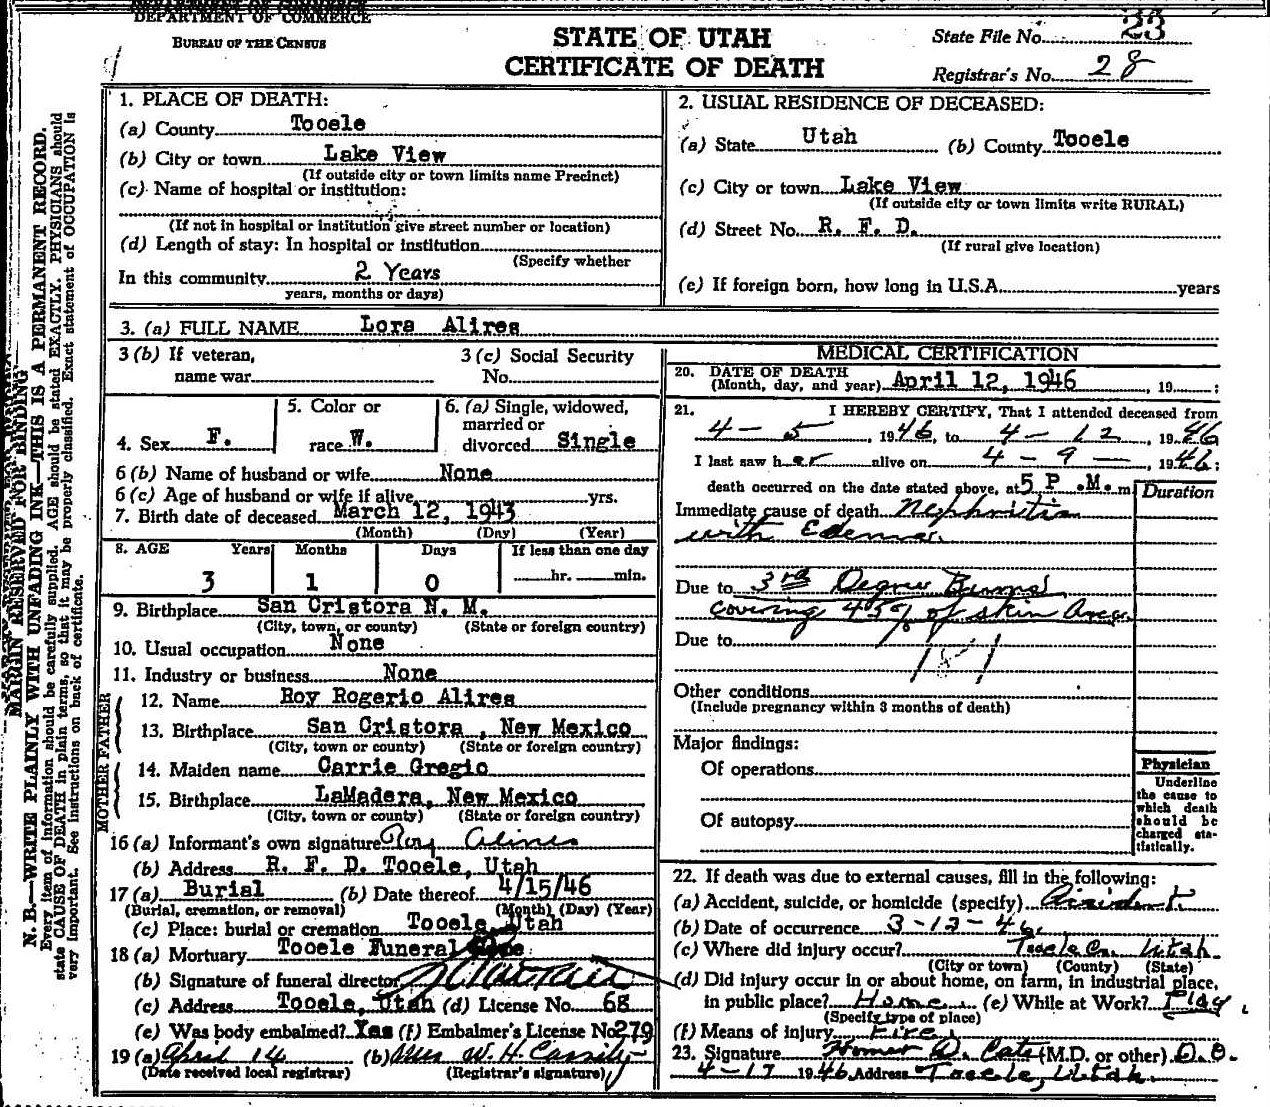 DEPARTMENT OF COMMERCE
BUREAU OF THE CENSUS
STATE OF UTAH
CERTIFICATE OF DEATH
State File No. 23
Registrar's No. 28
MARGIN RESERVED FOR BINDING
N. B.—WRITE PLAINLY WITH UNFADING INK—THIS IS A PERMANENT RECORD.
Every item of information should be carefully supplied. AGE should be stated EXACTLY. PHYSICIANS should
state CAUSE OF DEATH in plain terms, so that it may be properly classified. Exact statement of OCCUPATION is
very important. See instructions on back of certificate.
1. PLACE OF DEATH:
(a) County Tooele
(b) City or town Lake View
(If outside city or town limits name Precinct)
(c) Name of hospital or institution:
(If not in hospital or institution give street number or location)
(d) Length of stay: In hospital or institution
(Specify whether
In this community 2 Years
years, months or days)
2. USUAL RESIDENCE OF DECEASED:
(a) State Utah (b) County Tooele
(c) City or town Lake View
(If outside city or town limits write RURAL)
(d) Street No. R. F. D.
(If rural give location)
(e) If foreign born, how long in U.S.A. years
3. (a) FULL NAME Lora Alires
3 (b) If veteran,
name war
3 (c) Social Security
No.
4. Sex F.
5. Color or
race W.
6. (a) Single, widowed,
married or
divorced Single
6 (b) Name of husband or wife None
6 (c) Age of husband or wife if alive yrs.
7. Birth date of deceased March 12, 1943
(Month) (Day) (Year)
8. AGE Years Months Days If less than one day
3 1 0 hr. min.
9. Birthplace San Cristora N. M.
(City, town, or county) (State or foreign country)
10. Usual occupation None
11. Industry or business None
FATHER
12. Name Roy Rogerio Alires
13. Birthplace San Cristora, New Mexico
(City, town or county) (State or foreign country)
MOTHER
14. Maiden name Carrie Gregio
15. Birthplace LaMadera, New Mexico
(City, town or county) (State or foreign country)
16 (a) Informant's own signature Roy Alires
(b) Address R. F. D. Tooele, Utah
17 (a) Burial (b) Date thereof 4/15/46
(Burial, cremation, or removal) (Month) (Day) (Year)
(c) Place: burial or cremation Tooele, Utah
18 (a) Mortuary Tooele Funeral
(b) Signature of funeral director
(c) Address Tooele, Utah (d) License No. 68
(e) Was body embalmed? Yes (f) Embalmer's License No. 279
19 (a) April 14 (b) W. H. Cassity
(Date received local registrar) (Registrar's signature)
MEDICAL CERTIFICATION
20. DATE OF DEATH
(Month, day, and year) April 12, 1946 , 19 :
21. I HEREBY CERTIFY, That I attended deceased from
4 - 5 1946, to 4 - 12, 1946
I last saw her alive on 4 - 9 - , 1946;
death occurred on the date stated above, at 5 P .M. m
Duration
Immediate cause of death Nephritis
with Edema.
Due to 3rd Degree Burns
covering 45% of skin Area.
Due to
181
Other conditions
(Include pregnancy within 3 months of death)
Major findings:
Of operations
Of autopsy
Physician
Underline
the cause to
which death
should be
charged sta-
tistically.
22. If death was due to external causes, fill in the following:
(a) Accident, suicide, or homicide (specify) Accident.
(b) Date of occurrence 3-12-46
(c) Where did injury occur? Tooele Co. Utah.
(City or town) (County) (State)
(d) Did injury occur in or about home, on farm, in industrial place,
in public place? Home (e) While at Work? Play
(Specify type of place)
(f) Means of injury Fire
23. Signature Homer D. (M.D. or other) D.O.
4-17 1946 Address Tooele, Utah.